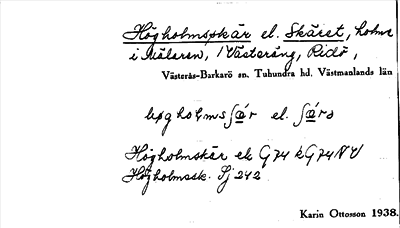 Högholmsskär el. Skäret, holme
i Mälaren, Västeräng, Ridö,
Västerås-Barkarö sn. Tuhundra hd. Västmanlands län
el.
Högholmskär el. G74 k G74 NV
Högholmssk. Sj 242
Karin Ottosson 1938.